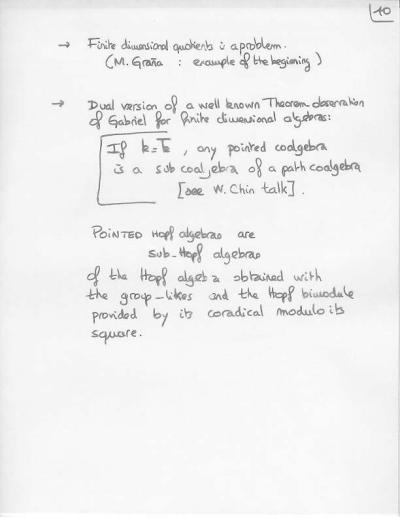 10
→ Finite dimensional quotients is a problem.
(M. Graña : example of the beginning)
→ Dual version of a well known Theorem observation
of Gabriel for finite dimensional algebras:
If k = k̅, any pointed coalgebra
is a sub coalgebra of a path coalgebra
[see W. Chin talk].
POINTED Hopf algebras are
sub-Hopf algebras
of the Hopf algebra obtained with
the group-likes and the Hopf bimodule
provided by its coradical modulo its
square.